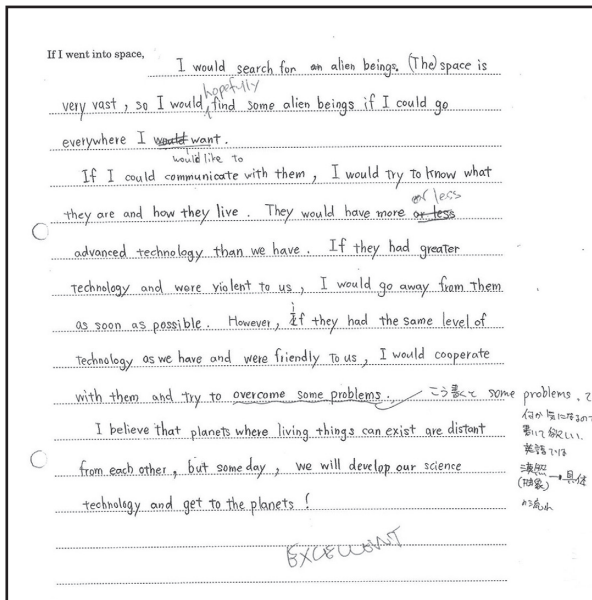 If I went into space, I would search for an alien beings. (The) space is
hopefully
very vast, so I would find some alien beings if I could go
everywhere I would want.
would like to
If I could communicate with them, I would try to know what
or less
they are and how they live. They would have more or less
advanced technology than we have. If they had greater
technology and were violent to us, I would go away from them
i
as soon as possible. However, if they had the same level of
technology as we have and were friendly to us, I would cooperate
with them and try to overcome some problems. こう書くと some problems. て
何か気になるので
I believe that planets where living things can exist are distant
書いて欲しい。
英語では
from each other, but someday, we will develop our science
漠然→具体
(抽象)
technology and get to the planets!
の流れ
EXCELLENT